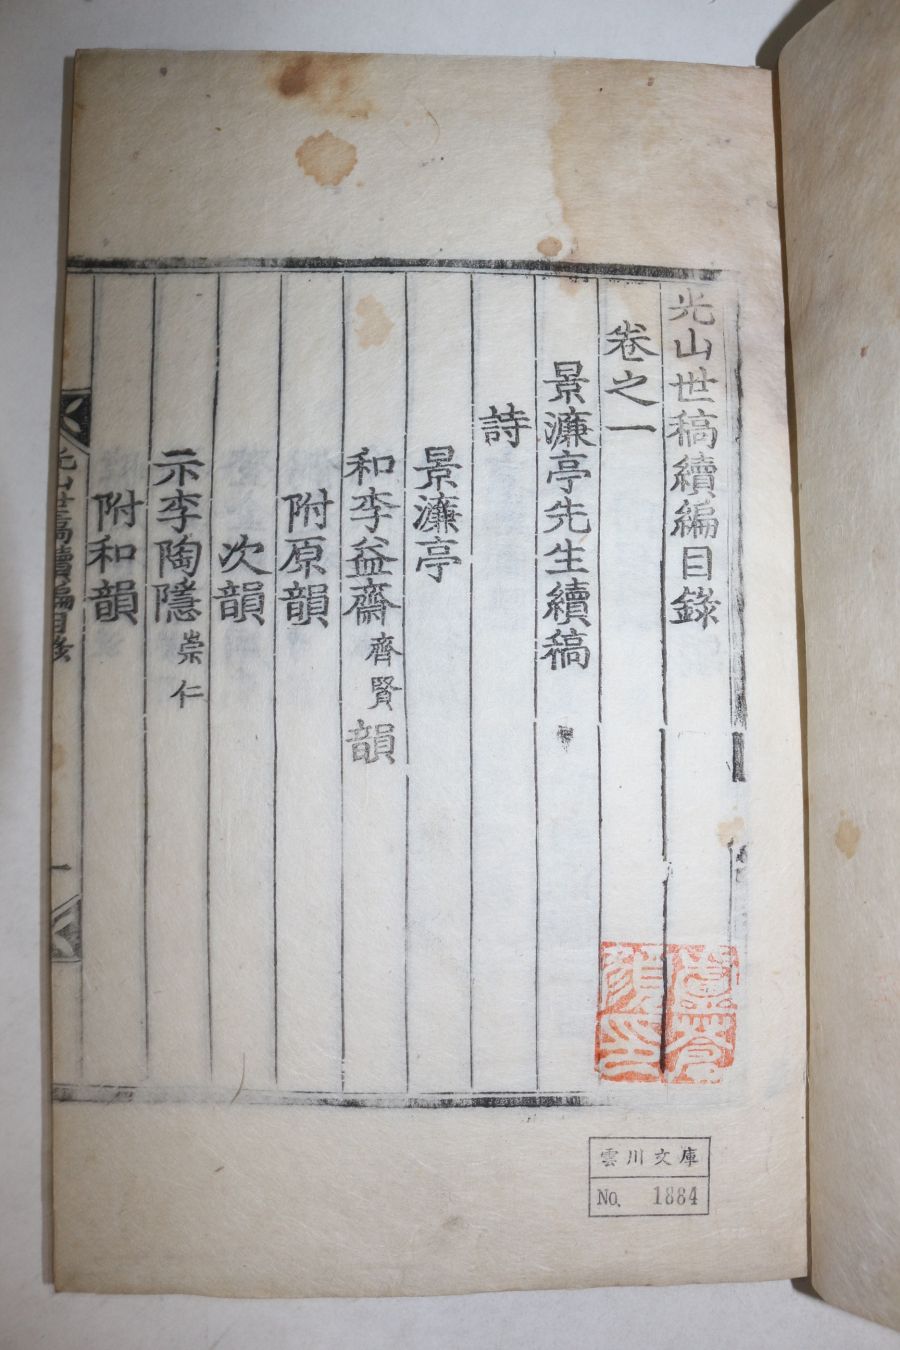 光山世稿續編目錄
卷之一
景濂亭先生續稿
詩
景濂亭
和李益齋齊賢韻
附原韻
次韻
示李陶隱崇仁
附和韻
光山世稿續編目錄
一
雲川文庫
No. 1884